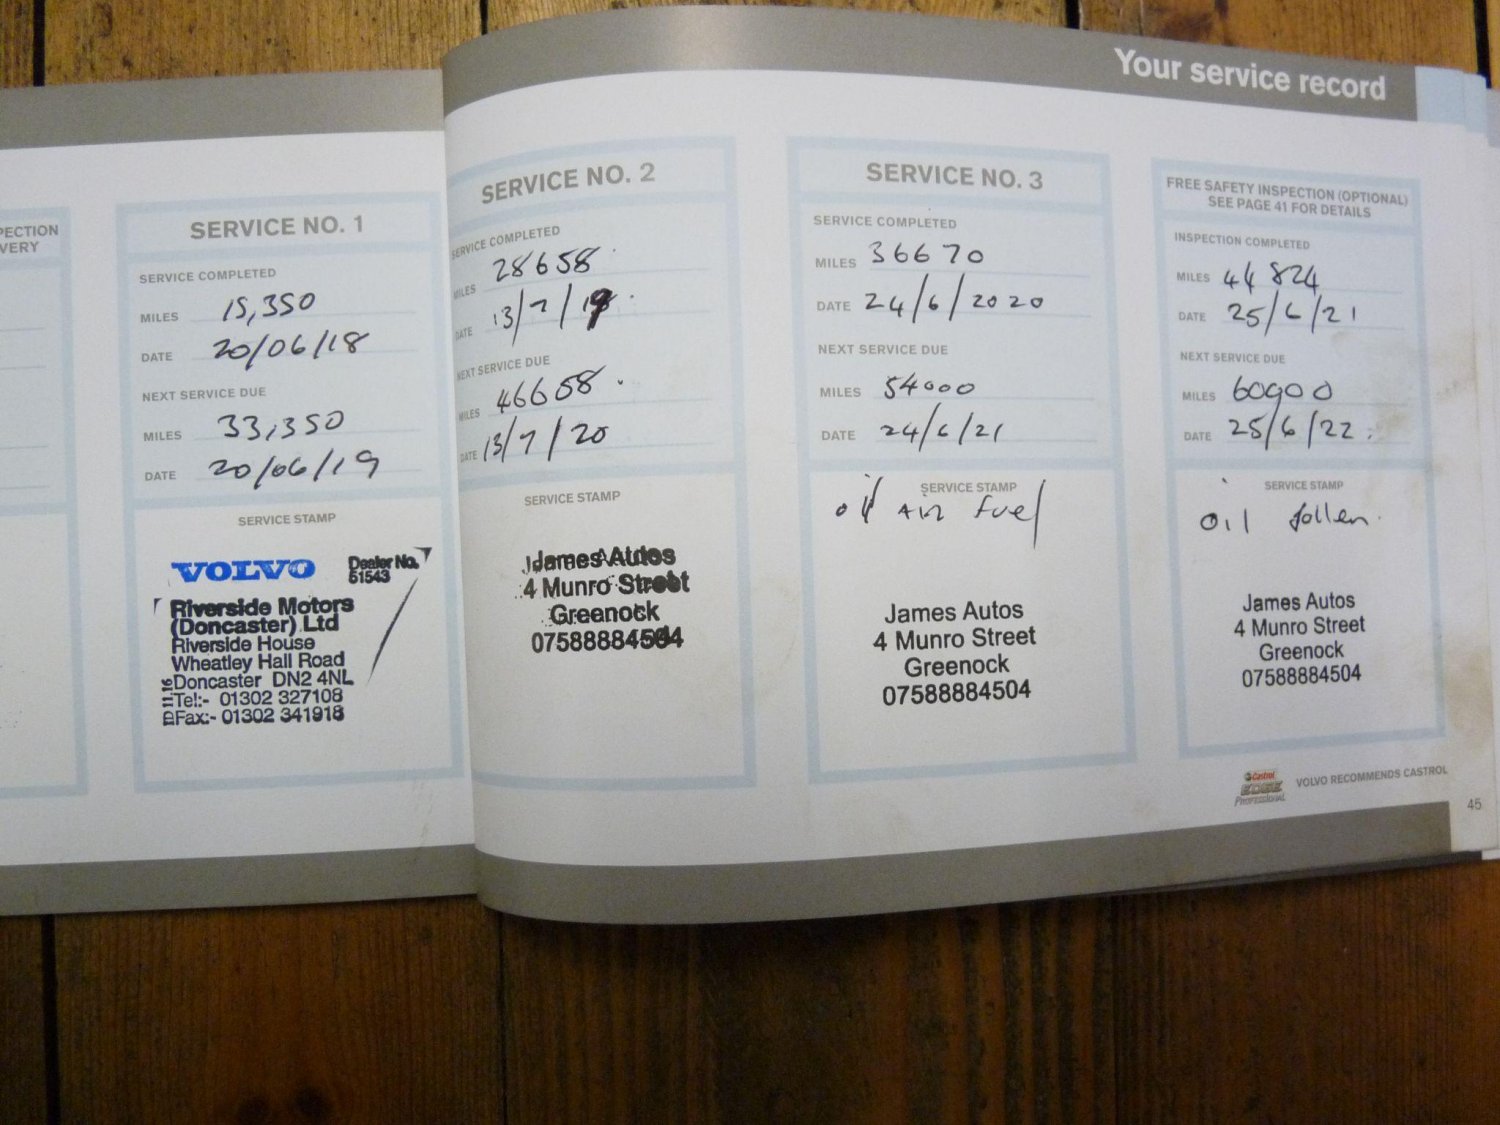 Your service record
PECTION
VERY
SERVICE NO. 1
SERVICE COMPLETED
MILES 15,350
DATE 20/06/18
NEXT SERVICE DUE
MILES 33,350
DATE 20/06/19
SERVICE STAMP
VOLVO
Dealer No.
51543
Riverside Motors
(Doncaster) Ltd
Riverside House
Wheatley Hall Road
Doncaster DN2 4NL
Tel:- 01302 327108
Fax:- 01302 341918
SERVICE NO. 2
SERVICE COMPLETED
MILES 28658
DATE 13/7/19
NEXT SERVICE DUE
MILES 46658
DATE 13/7/20
SERVICE STAMP
James Autos
4 Munro Street
Greenock
07588884504
SERVICE NO. 3
SERVICE COMPLETED
MILES 36670
DATE 24/6/2020
NEXT SERVICE DUE
MILES 54000
DATE 24/6/21
SERVICE STAMP
oil air fuel
James Autos
4 Munro Street
Greenock
07588884504
FREE SAFETY INSPECTION (OPTIONAL)
SEE PAGE 41 FOR DETAILS
INSPECTION COMPLETED
MILES 44 824
DATE 25/6/21
NEXT SERVICE DUE
MILES 60900
DATE 25/6/22
SERVICE STAMP
oil
James Autos
4 Munro Street
Greenock
07588884504
Castrol
EDGE
Professional
VOLVO RECOMMENDS CASTROL
45